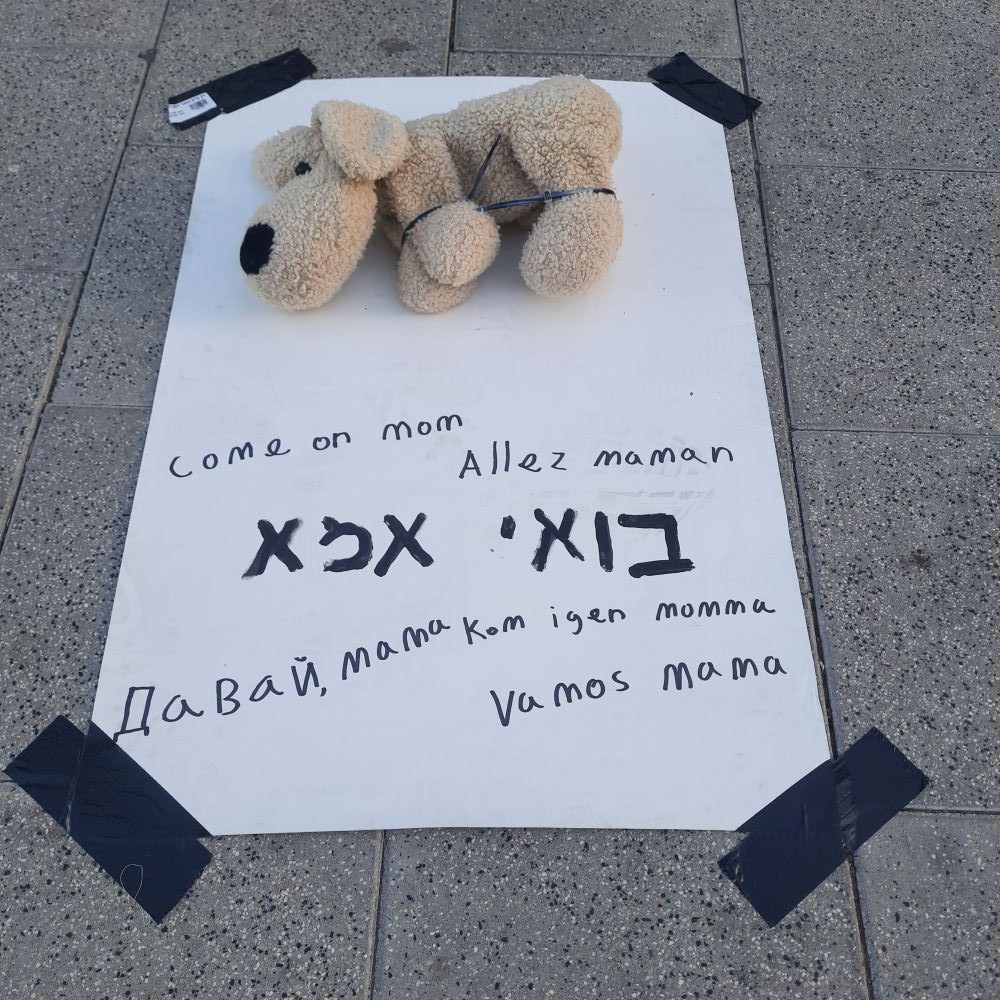 Come on mom
Allez maman
בואי אמא
Давай, мама
Kom igen momma
Vamos mama